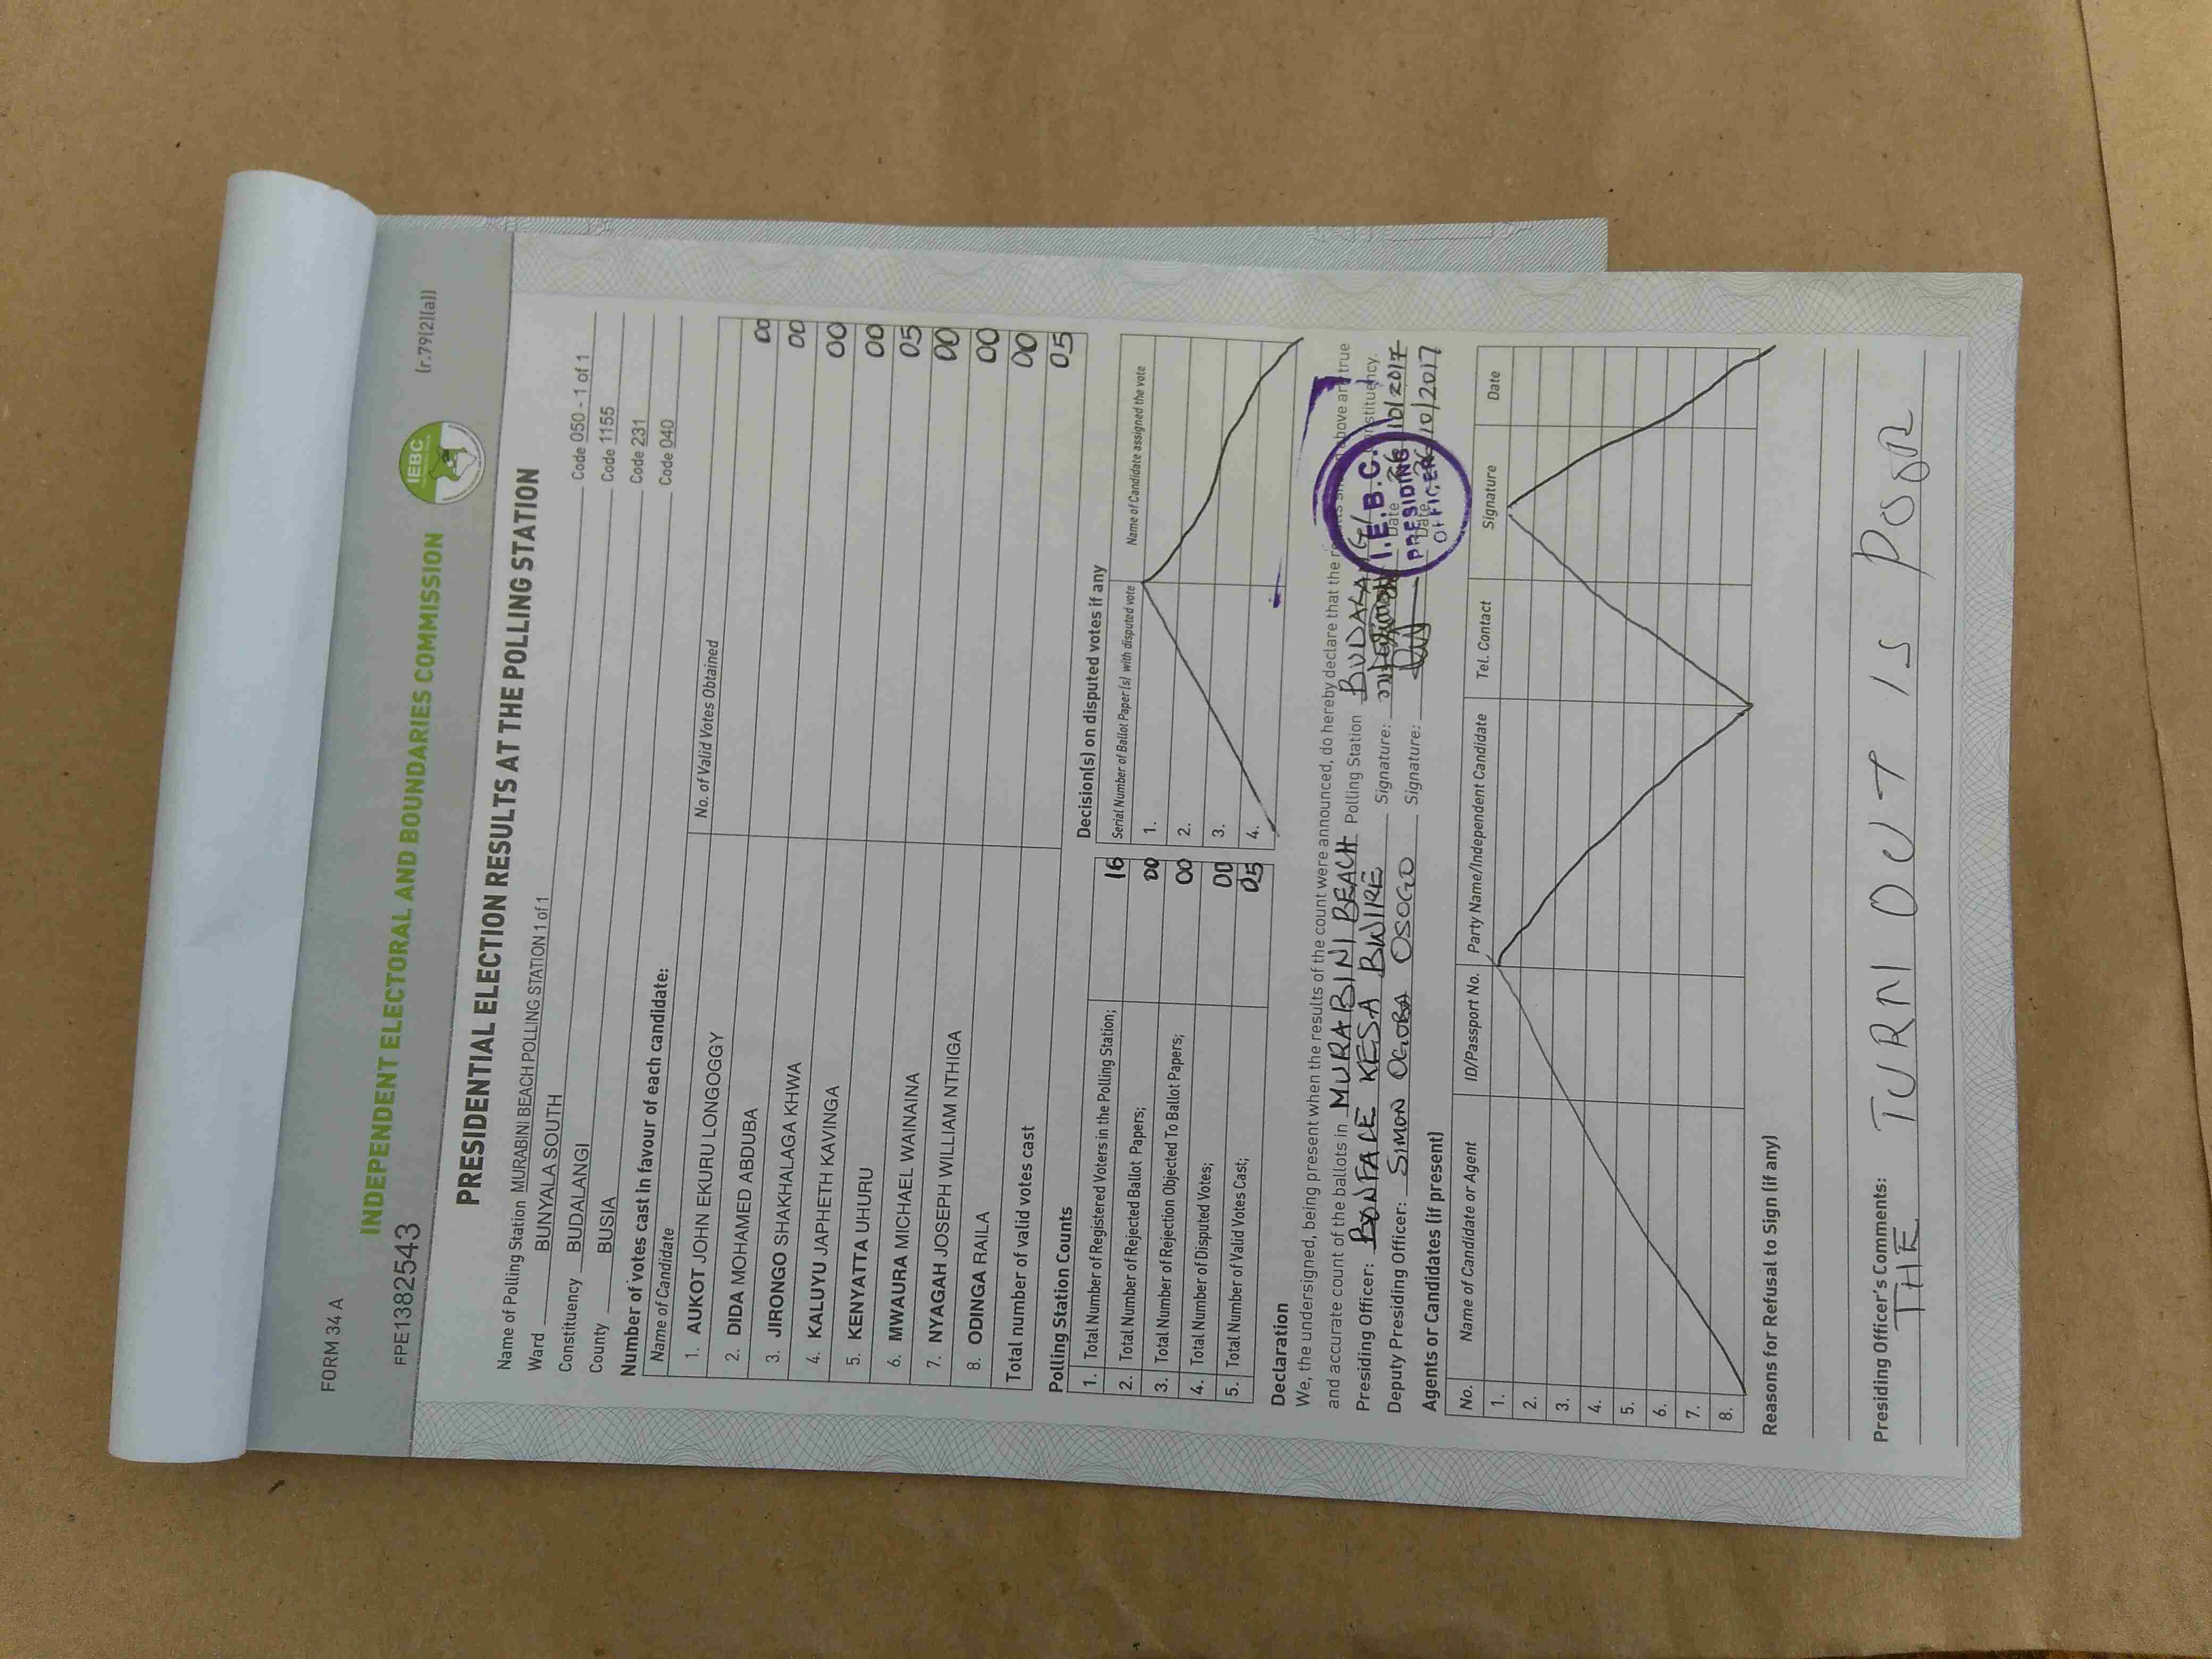 FORM 34 A
INDEPENDENT ELECTORAL AND BOUNDARIES COMMISSION
IEBC
(r.79(2)(a))
FPE1382543
PRESIDENTIAL ELECTION RESULTS AT THE POLLING STATION
Name of Polling Station MURABINI BEACH POLLING STATION 1 of 1 Code 050 - 1 of 1
Ward BUNYALA SOUTH Code 1155
Constituency BUDALANGI Code 231
County BUSIA Code 040
Number of votes cast in favour of each candidate:
Name of Candidate No. of Valid Votes Obtained
1. AUKOT JOHN EKURU LONGOGGY 00
2. DIDA MOHAMED ABDUBA 00
3. JIRONGO SHAKHALAGA KHWA 00
4. KALUYU JAPHETH KAVINGA 00
5. KENYATTA UHURU 05
6. MWAURA MICHAEL WAINAINA 00
7. NYAGAH JOSEPH WILLIAM NTHIGA 00
8. ODINGA RAILA 00
Total number of valid votes cast 05
Polling Station Counts
1. Total Number of Registered Voters in the Polling Station; 16
2. Total Number of Rejected Ballot Papers; 00
3. Total Number of Rejection Objected To Ballot Papers; 00
4. Total Number of Disputed Votes; 00
5. Total Number of Valid Votes Cast; 05
Decision(s) on disputed votes if any
Serial Number of Ballot Paper(s) with disputed vote Name of Candidate assigned the vote
1.
2.
3.
4.
Declaration
We, the undersigned, being present when the results of the count were announced, do hereby declare that the above are true
and accurate count of the ballots in MURABINI BEACH Polling Station BUDALANGI Constituency.
Presiding Officer: BONFACE KESA BWIRE Signature: Date 26/10/2017
Deputy Presiding Officer: SIMON OGOBA OSOGO Signature: Date 26/10/2017
I.E.B.C.
PRESIDING
OFFICER
Agents or Candidates (if present)
No. Name of Candidate or Agent ID/Passport No. Party Name/Independent Candidate Tel. Contact Signature Date
1.
2.
3.
4.
5.
6.
7.
8.
Reasons for Refusal to Sign (if any)
Presiding Officer's Comments:
THE TURN OUT IS POOR